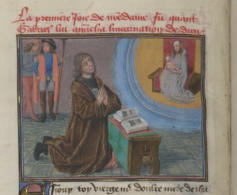 La premiere Joie de n̄re dame fu quant
Gabriel lui anuncha lincarnation de dieu
Esiouy toy vierge m doulce mere de ihu